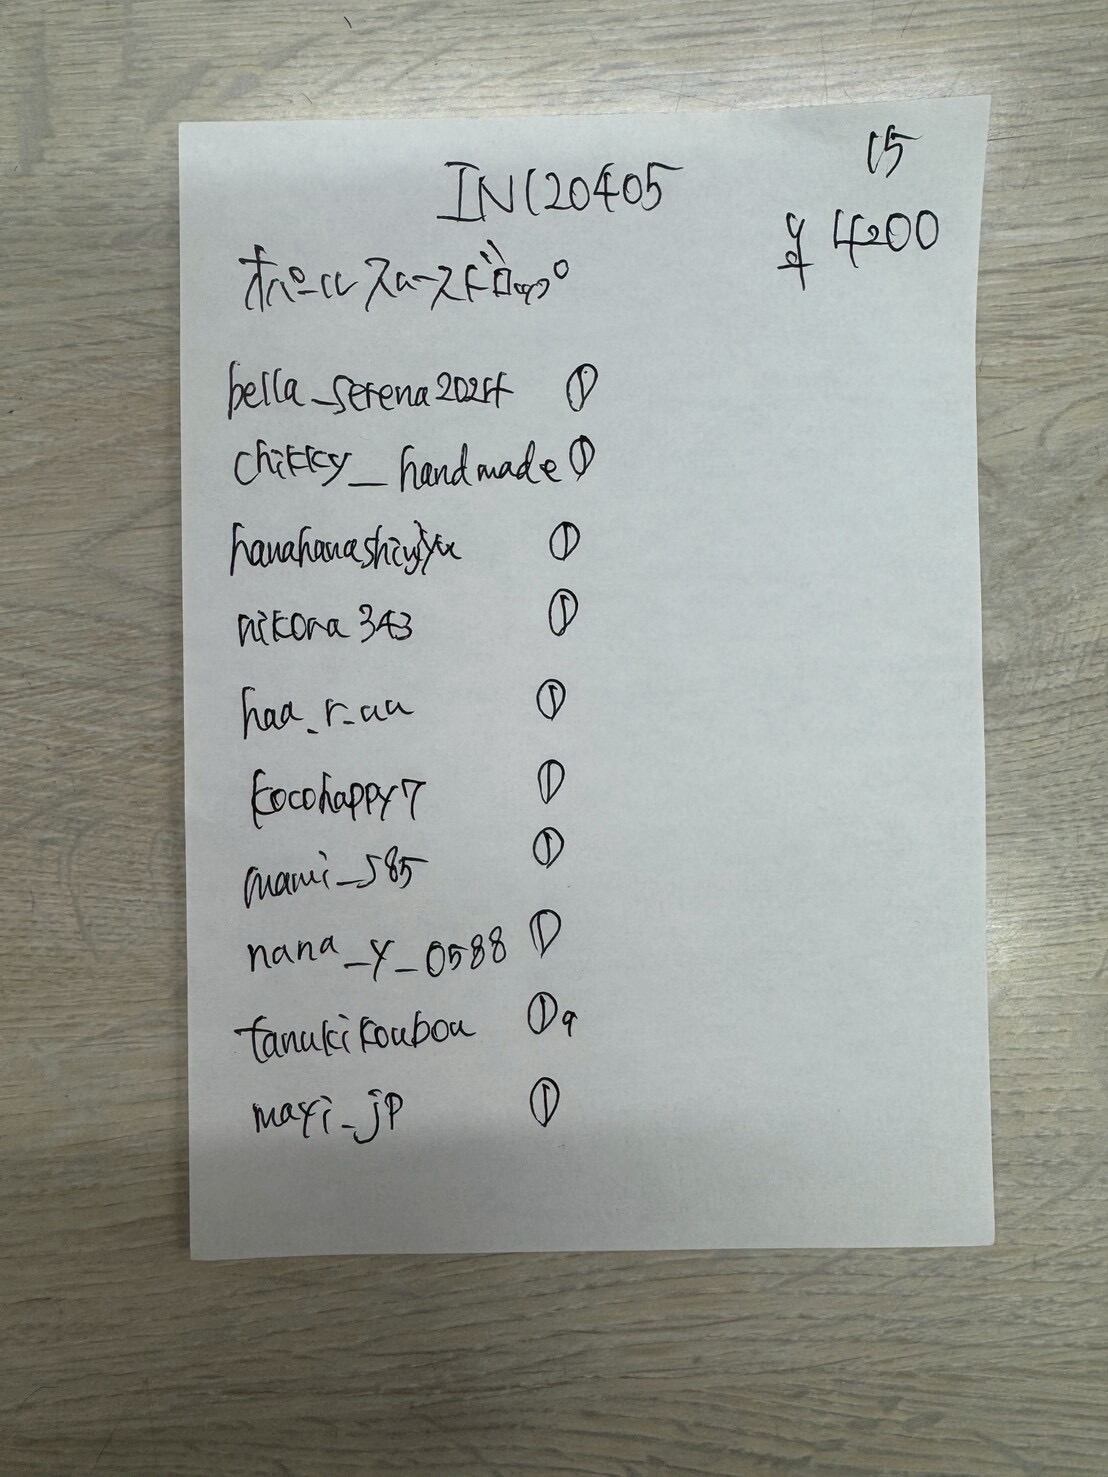 15
IN120405
¥4200
オパールスムースドロップ
bella_serena2024 ①
chikky_handmade ①
hanahanashinjyu ①
nikora343 ①
haa_r_uu ①
kocohappy7 ①
mami_585 ①
nana_y_0588 ①
tanukikoubou ①a
mayi_jp ①